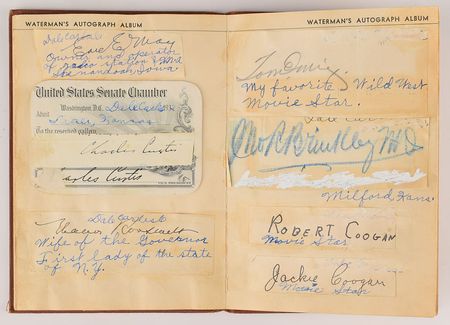 WATERMAN'S AUTOGRAPH ALBUM
Earl E May
Owner and operator
of radio station KMA
Shenandoah Iowa
United States Senate Chamber
Washington, D.C.
Admit
Kansas
To the reserved gallery
Charles Curtis
Charles Curtis
Wife of the Governor
First lady of the state
of N.Y.
WATERMAN'S AUTOGRAPH ALBUM
My favorite Wild West
Movie Star.
Brinkley MD
Milford Kans.
ROBERT COOGAN
Movie Star
Jackie Coogan
Movie Star